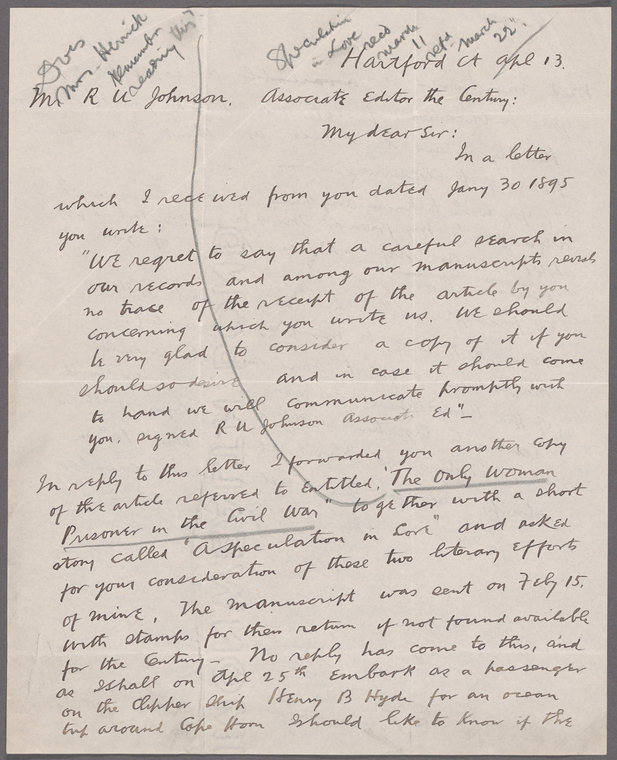 Does
Mrs. Herrick
remember
reading this?
Speculation
in Love recd
March 11
retd March 22"
Hartford Ct Apl 13.
Mr R U Johnson. Associate Editor the Century:
My dear Sir:
In a letter
which I received from you dated Jany 30 1895
you write:
"We regret to say that a careful search in
our records and among our manuscripts reveals
no trace of the receipt of the article by you
concerning which you write us. We should
be very glad to consider a copy of it if you
should so desire and in case it should come
to hand we will communicate promptly with
you. signed R U Johnson Associate Ed"—
In reply to this letter I forwarded you another copy
of the article referred to entitled, "The Only Woman
Prisoner in the Civil War" together with a short
story called "A speculation in Love" and asked
for your consideration of these two literary efforts
of mine. The manuscript was sent on Feby 15,
with stamps for their return if not found available
for the Century— No reply has come to this, and
as I shall on Apl 25th embark as a passenger
on the Clipper Ship Henry B Hyde for an ocean
trip around Cape Horn I should like to know if the